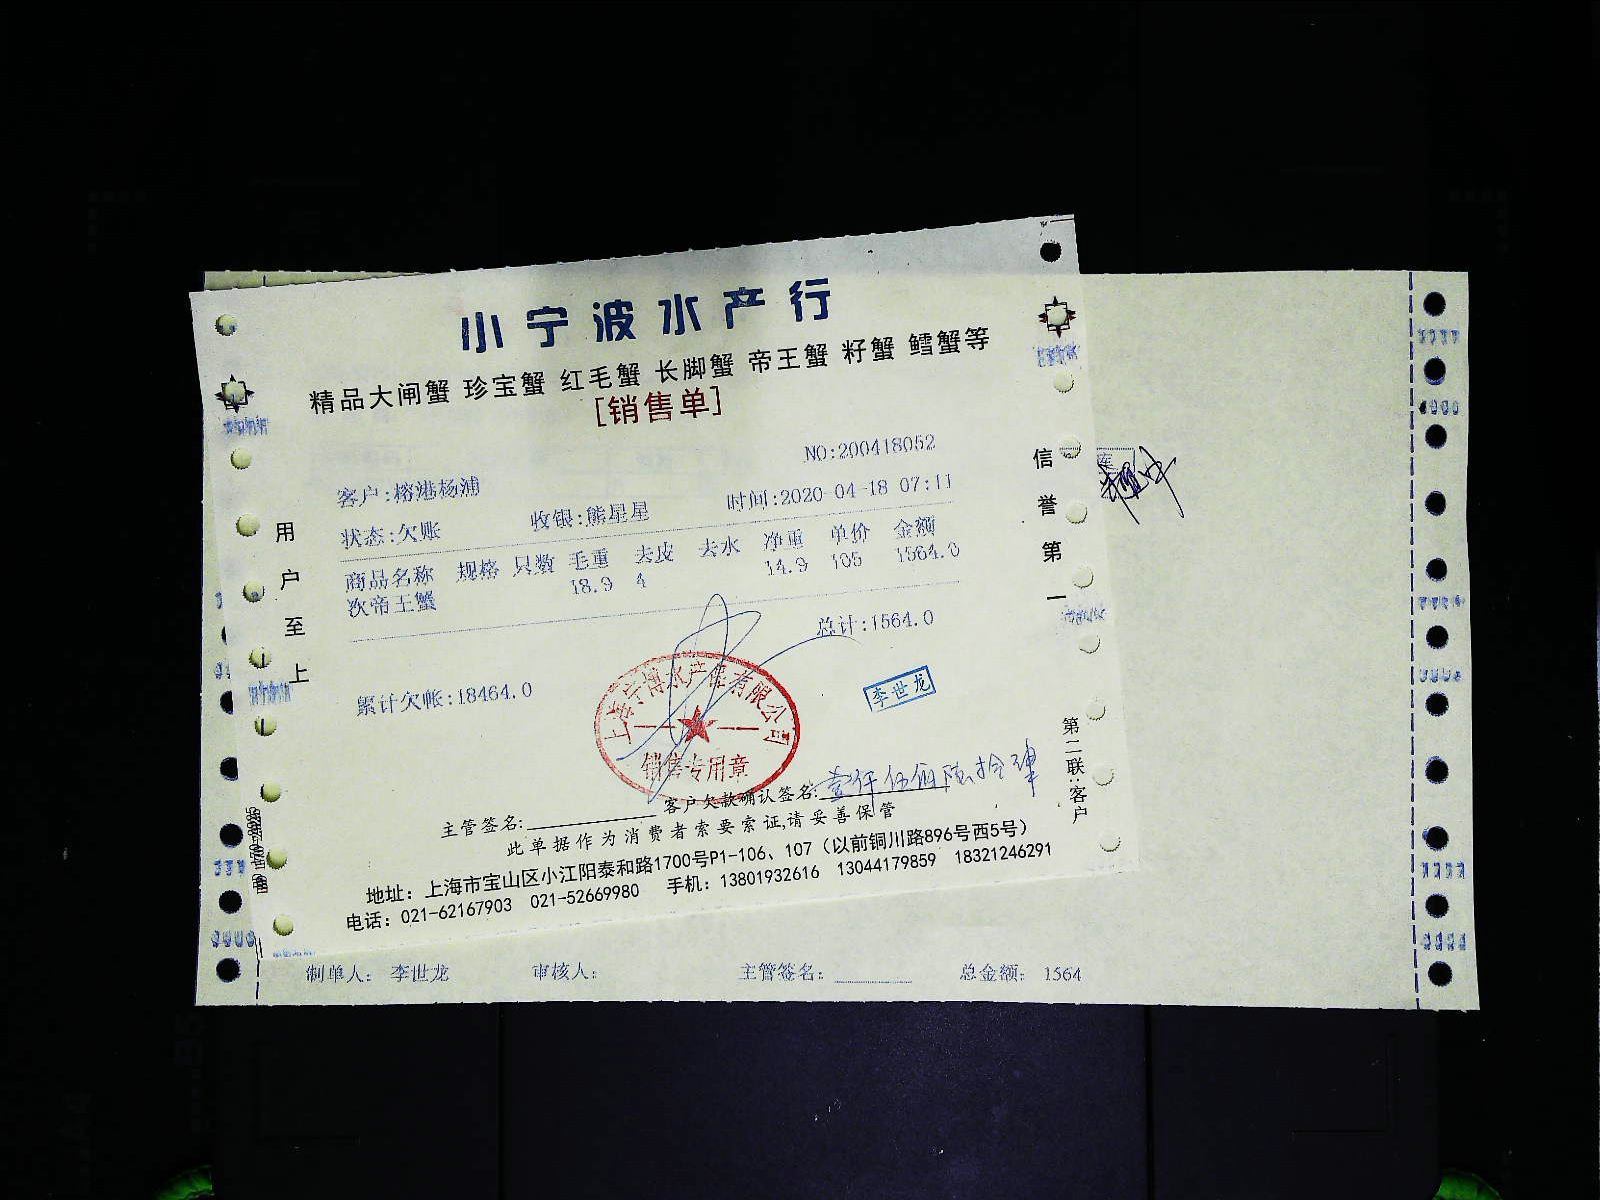 小宁波水产行
精品大闸蟹 珍宝蟹 红毛蟹 长脚蟹 帝王蟹 籽蟹 鳕蟹等
[销售单]
NO:200418052
客户:榕港杨浦 时间:2020-04-18 07:11
状态:欠账 收银:熊星星
商品名称 规格 只数 毛重 去皮 去水 净重 单价 金额
次帝王蟹 18.9 4 14.9 105 1564.0
总计:1564.0
累计欠帐:18464.0
李世龙
销售专用章
主管签名: 客户欠款确认签名: 壹仟伍佰陆拾肆
此单据作为消费者索要索证,请妥善保管
地址：上海市宝山区小江阳泰和路1700号P1-106、107（以前铜川路896号西5号）
电话：021-62167903 021-52669980 手机：13801932616 13044179859 18321246291
用户至上
信誉第一
第二联:客户
制单人： 李世龙 审核人： 主管签名： 总金额： 1564